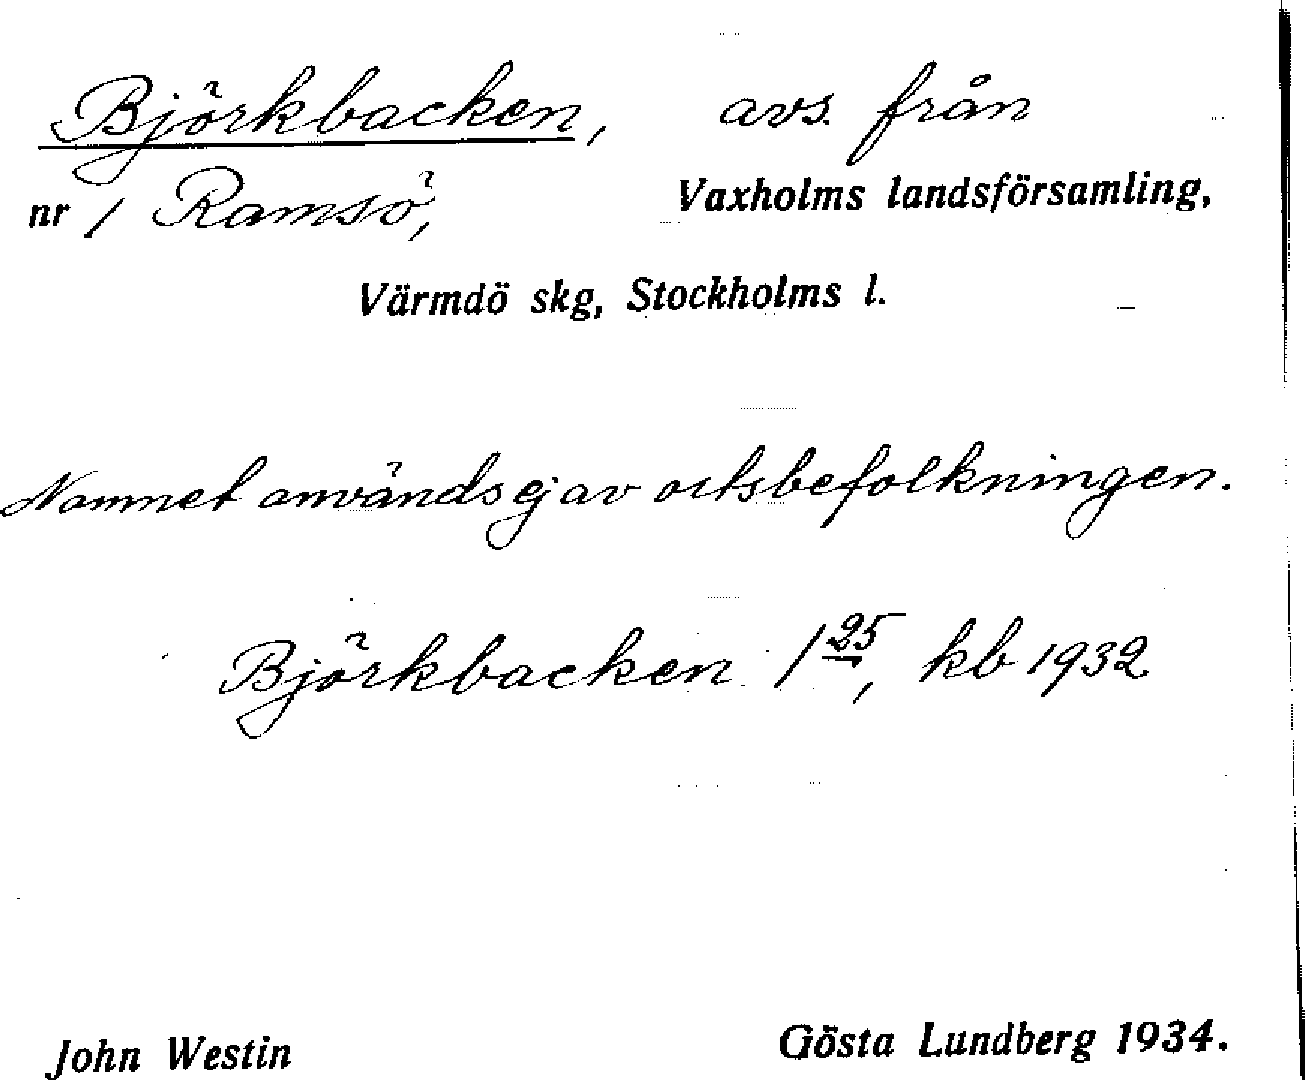 Björkbacken, avs. från
nr 1 Ramsö, Vaxholms landsförsamling,
Värmdö skg, Stockholms l.
Namnet användes ej av ortsbefolkningen.
Björkbacken 1 25, kb 1932
John Westin Gösta Lundberg 1934.